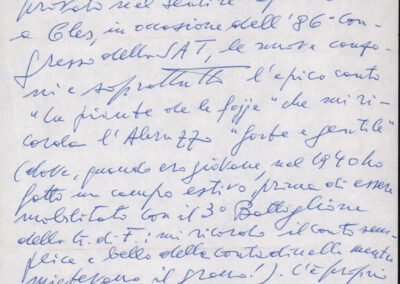 provato nel sentire
a Cles, in occasione dell'86° Con-
gresso della SAT, le nuove canzo-
ni e soprattutto l'epico canto
"La piante de le fojje" che mi ri-
corda l'Abruzzo "forte e gentile"
(dove, quando ero giovane, nel 1940 ho
fatto un campo estivo, prima di essere
mobilitato con il 3° Battaglione
della G. di F.: mi ricordo il canto sem-
plice e bello delle contadinelle mentre
mietevano il grano!). C'è proprio